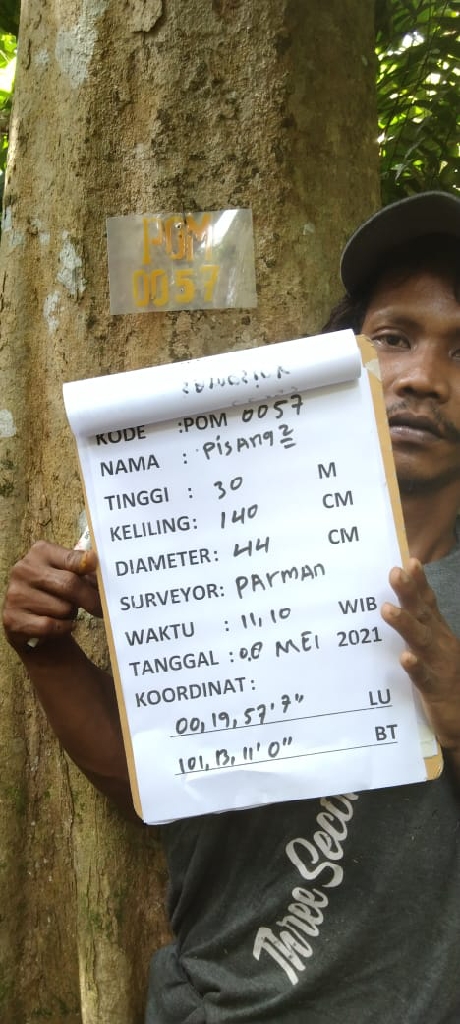 POM
0057
KODE :POM 0057
NAMA : Pisang2
TINGGI : 30 M
KELILING: 140 CM
DIAMETER: 44 CM
SURVEYOR: PARMAN
WAKTU : 11,10 WIB
TANGGAL : 08 MEI 2021
KOORDINAT:
00,19,57'7" LU
101,13,11'0" BT
Three Seco